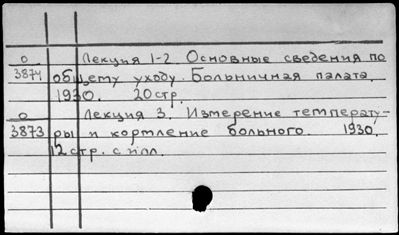 О Лекция 1-2. Основные сведения по
3874 общему уходу. Больничная палата.
1930. 20 стр.
О Лекция 3. Измерение температу-
3873 ры и кормление больного. 1930.
12 стр. с илл.